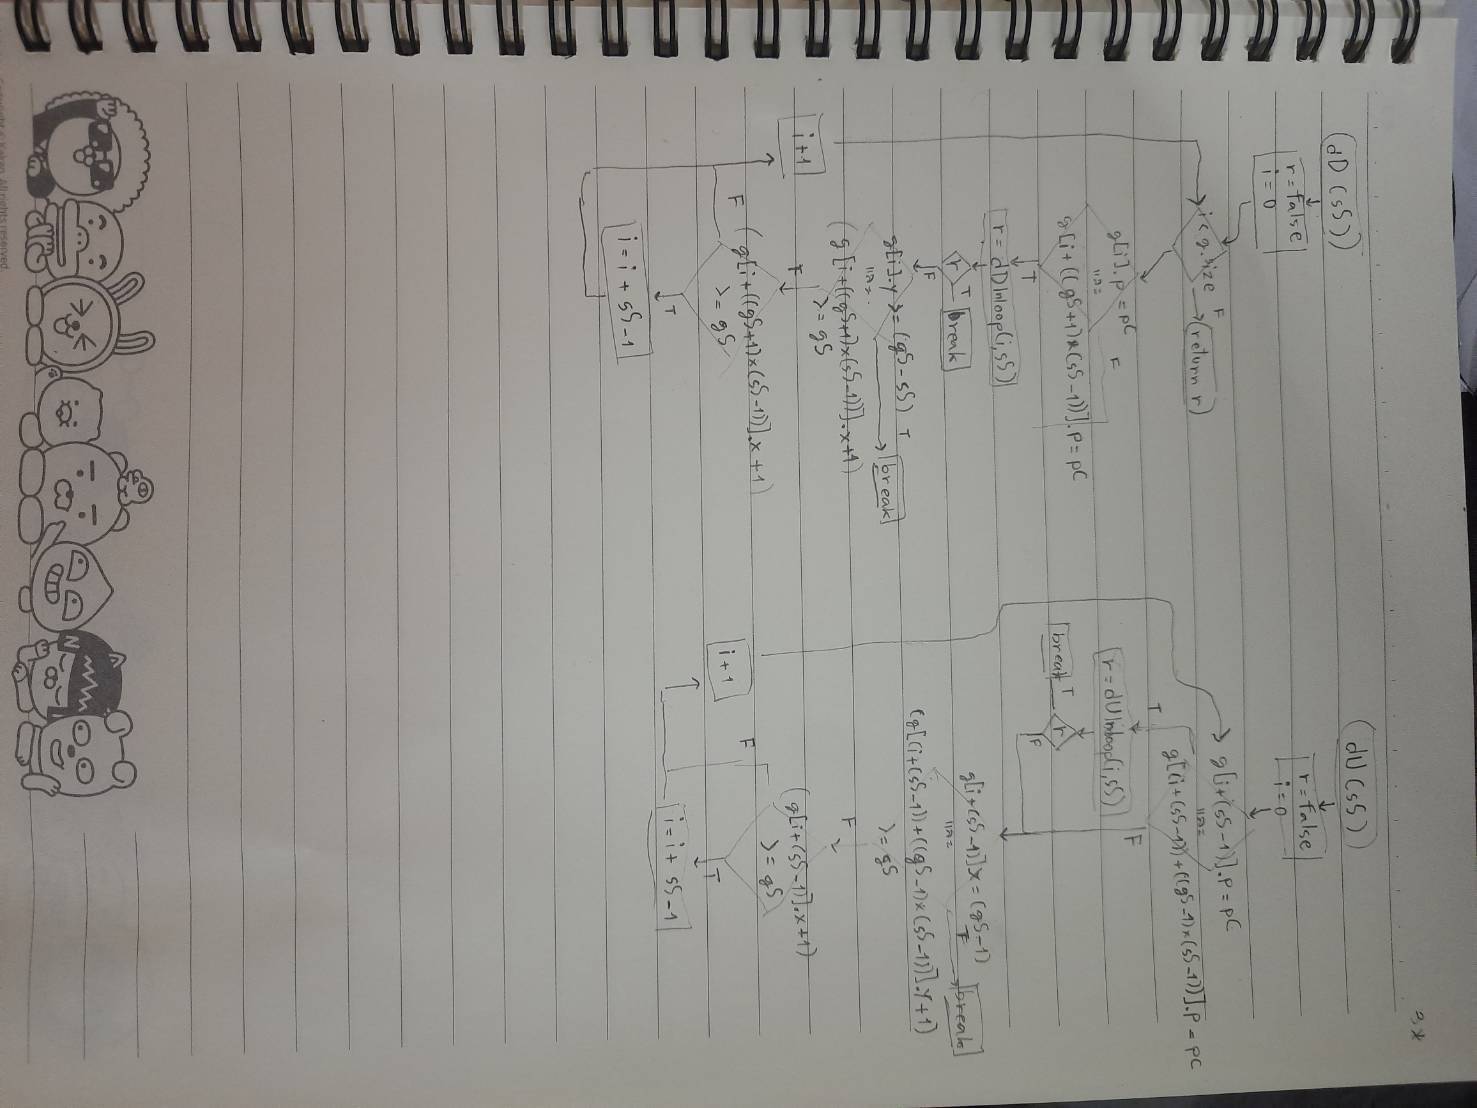 dD (sS)
r = false
i = 0
i < g.size F return r
g[i].p = pC
และ
F
g[i+((gS+1)×(sS-1))].p = pC
T
r = dDInloop(i,sS)
r T break
F
g[i].y >= (gS-sS) T break
และ
(g[i+((gS+1)×(sS-1))].x+1)
>= gS
i+1
F
(g[i+((gS+1)×(sS-1))].x+1)
>= gS
F
T
i = i + sS-1
dU (sS)
r = false
i = 0
g[i+(sS-1)].p = pC
และ
g[(i+(sS-1))+((gS-1)×(sS-1))].p = pC
T
F
r = dUInloop(i,sS)
break T r
F
g[i+(sS-1)]x = (gS-1)
และ
T break
(g[(i+(sS-1))+((gS-1)×(sS-1))].y+1)
>= gS
F
(g[i+(sS-1)].x+1)
>= gS
F
i+1
T
i = i + sS-1
All rights reserved.